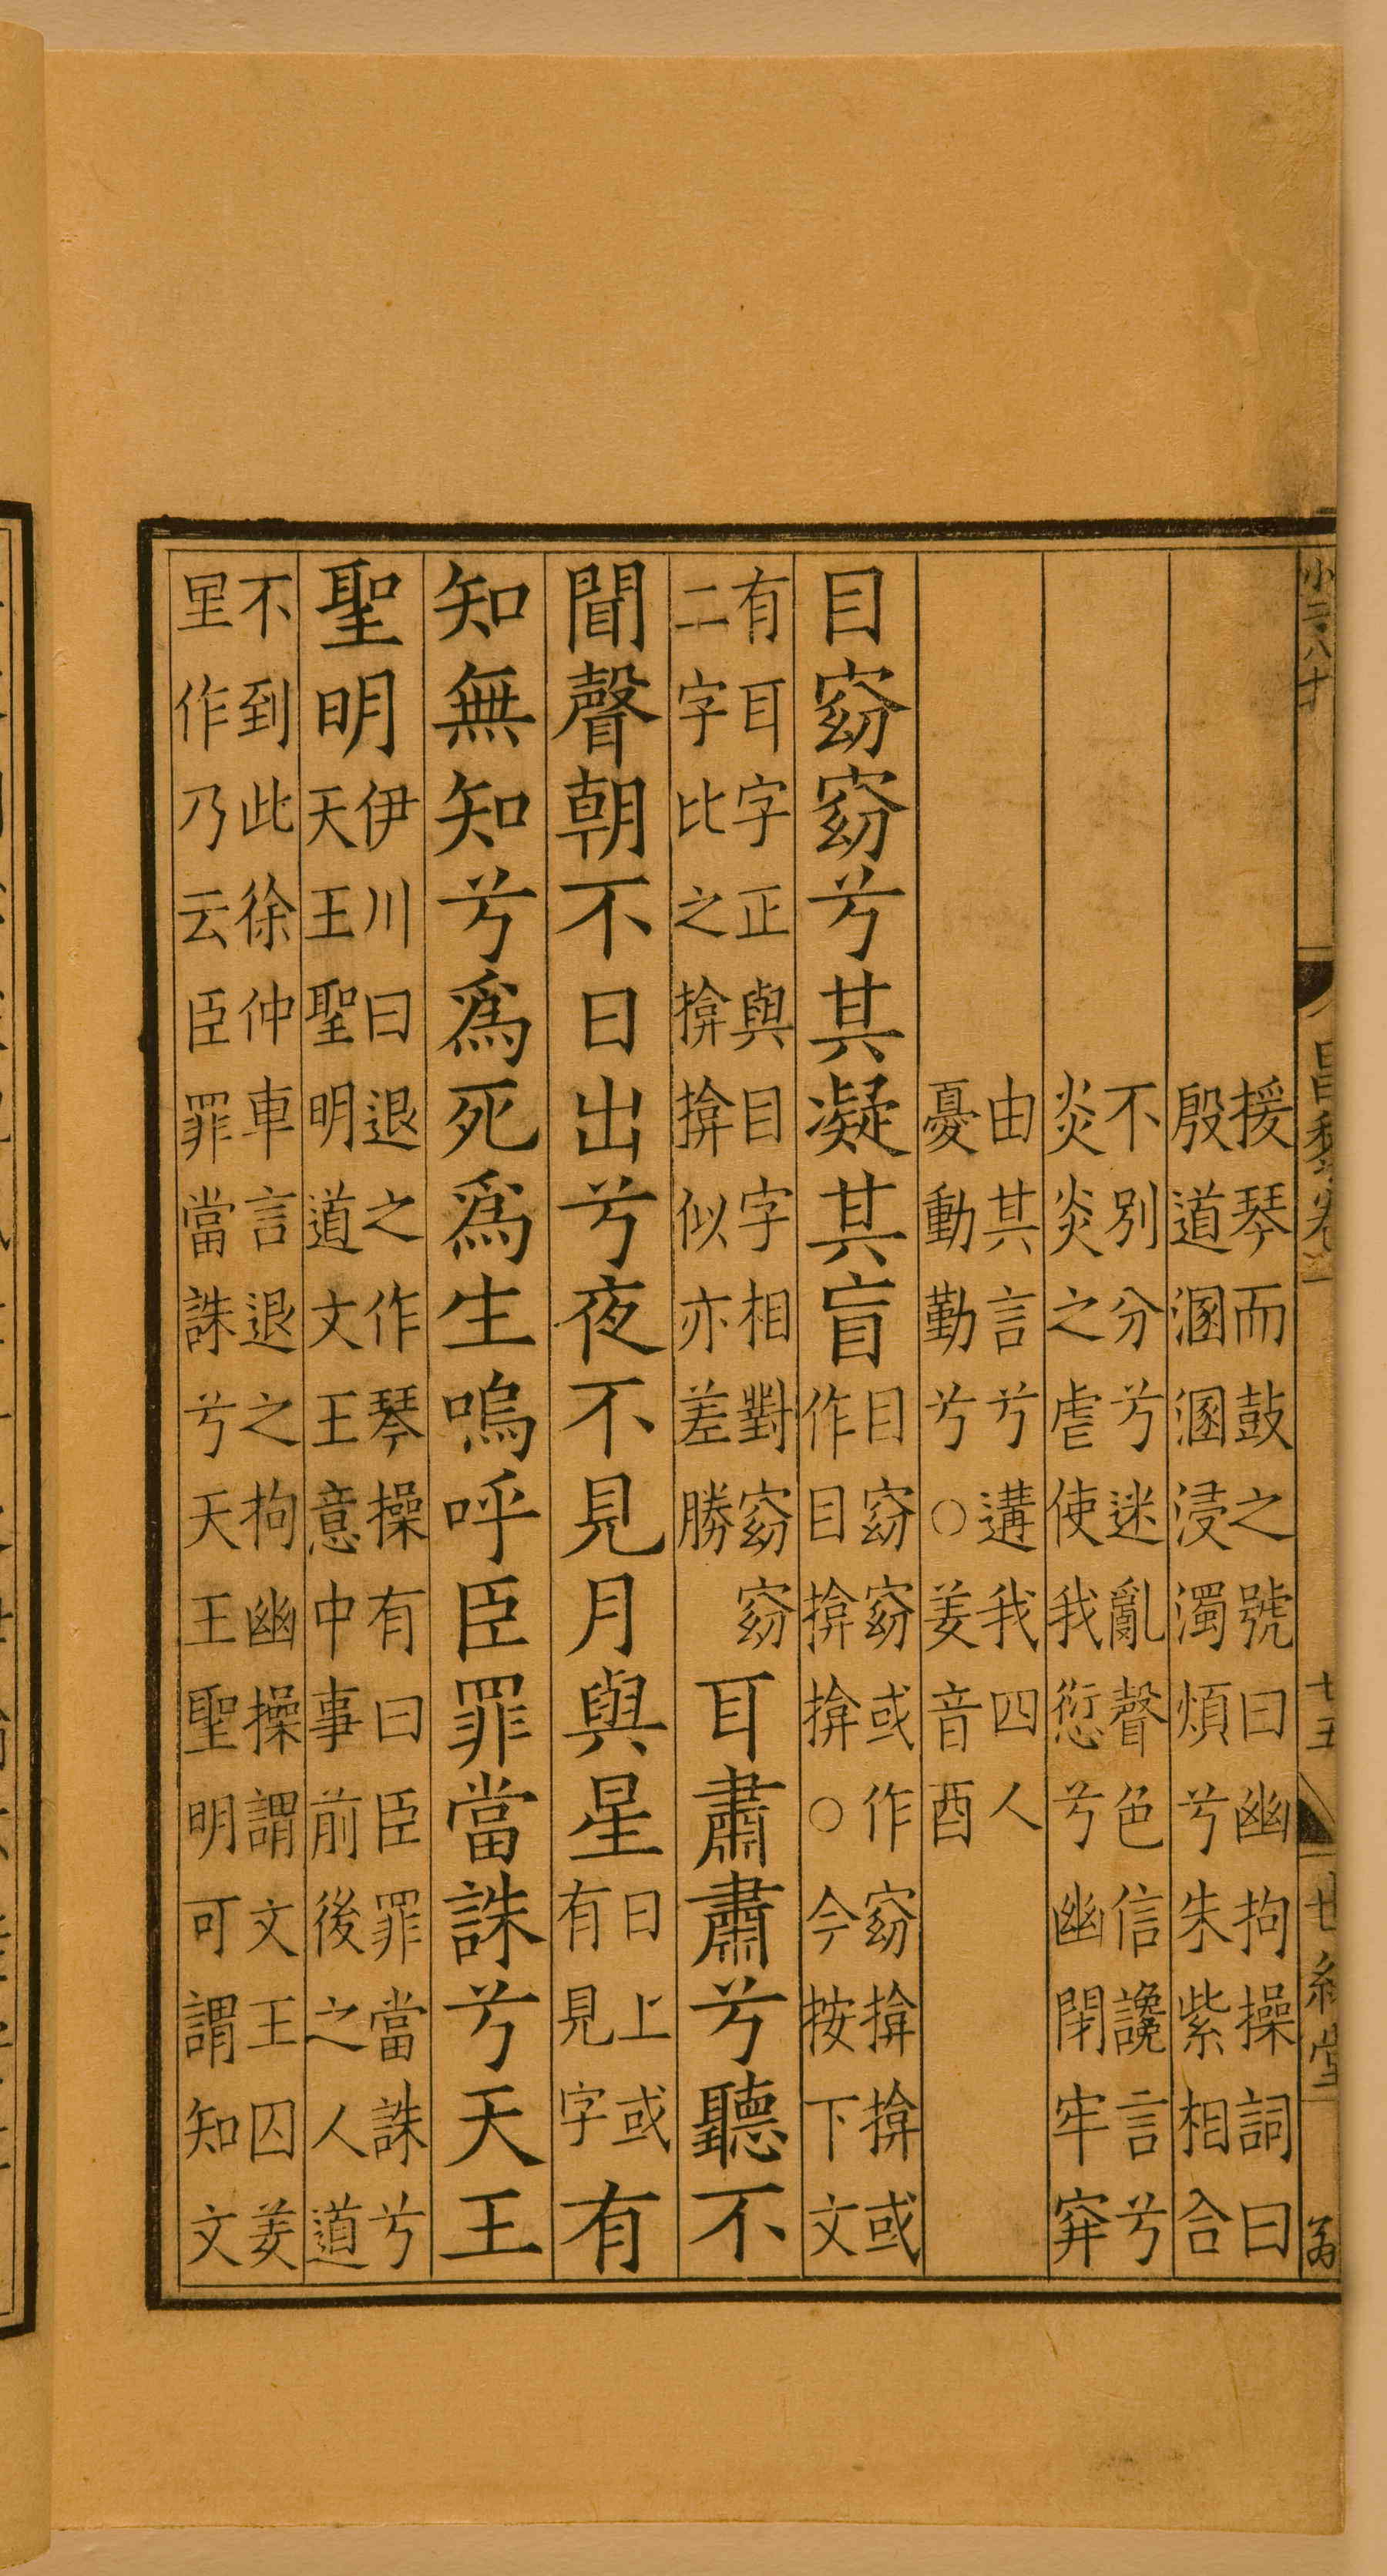 援琴而鼓之號曰幽拘操詞曰
殷道溷溷浸濁煩兮朱紫相合
不別分兮迷亂聲色信讒言兮
炎炎之虐使我愆兮幽閉牢穽
由其言兮遘我四人
憂動勤兮○姜音酉
目窈窈兮其凝其盲
目窈窈或作窈揜揜或
作目揜揜○今按下文
有耳字正與目字相對窈窈
二字比之揜揜似亦差勝
耳肅肅兮聽不
聞聲朝不日出兮夜不見月與星
日上或
有見字
有
知無知兮爲死爲生嗚呼臣罪當誅兮天王
聖明
伊川曰退之作琴操有曰臣罪當誅兮
天王聖明道文王意中事前後之人道
不到此徐仲車言退之拘幽操謂文王囚羑
里作乃云臣罪當誅兮天王聖明可謂知文
小三八十
昌黎卷一
十五
世綵堂